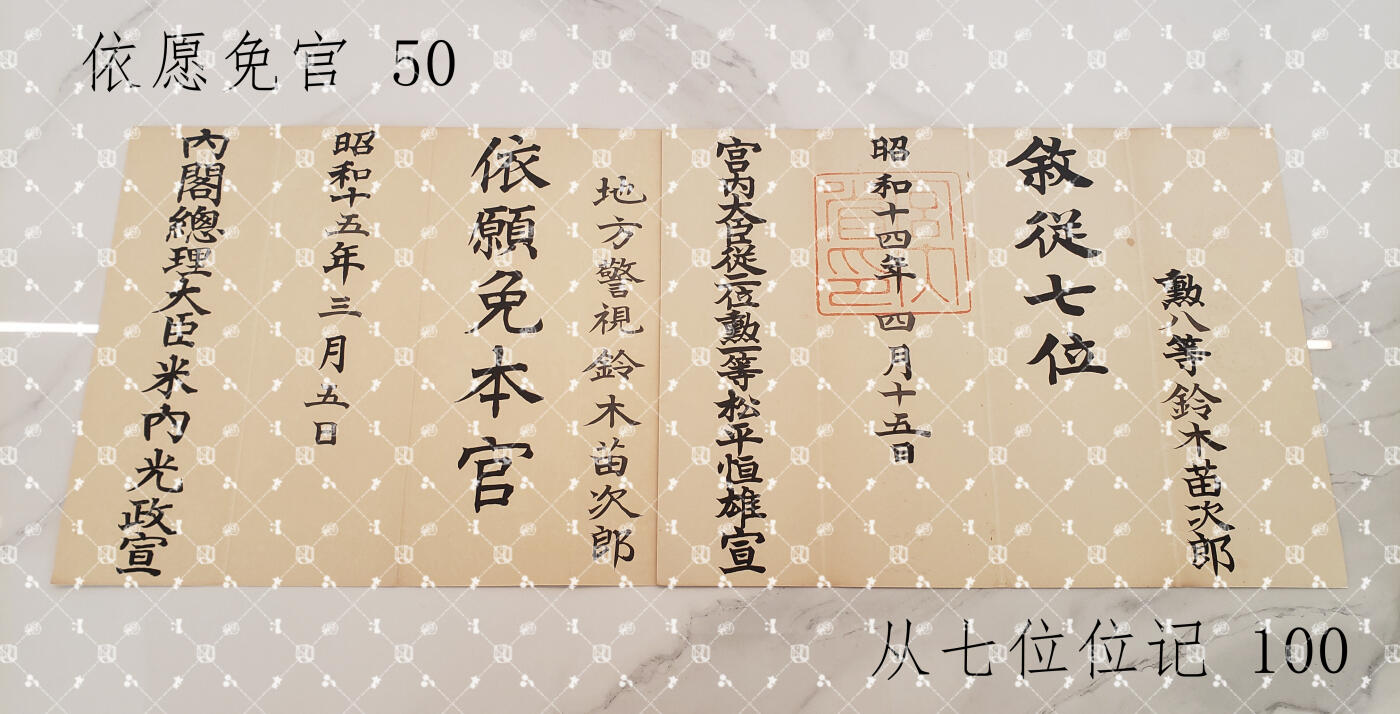 依愿免官 50
勲八等鈴木苗次郎
敘從七位
昭和十四年四月十五日
宮内大臣從二位勲一等松平恒雄宣
地方警視鈴木苗次郎
依願免本官
昭和十五年三月五日
内閣總理大臣米内光政宣
从七位位记 100